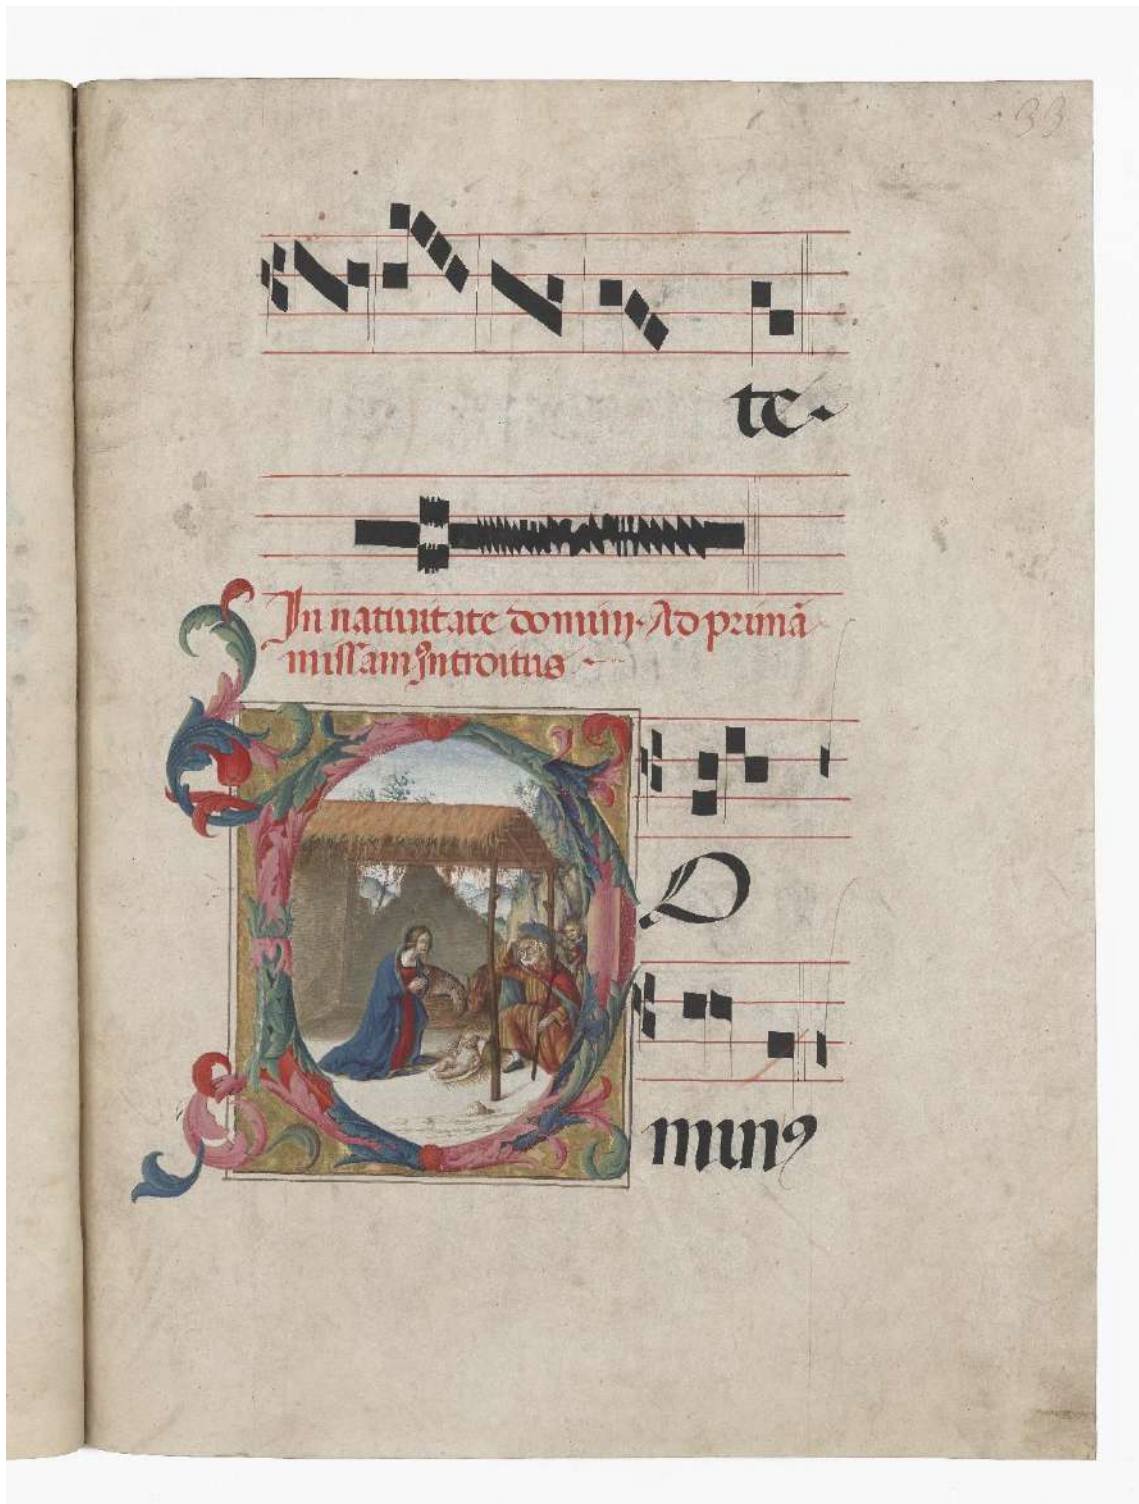 33
te.
In natiuitate domini. Ad primã
missam Introitus
D O
minꝰ